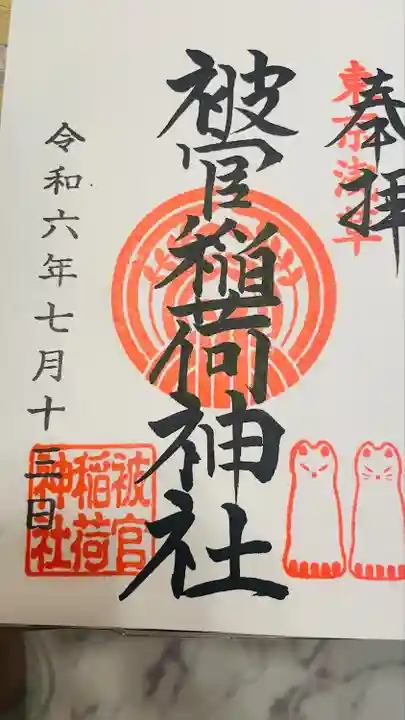 奉拝
東京浅草
被官稲荷神社
被官
稲荷
神社
令和六年七月十三日